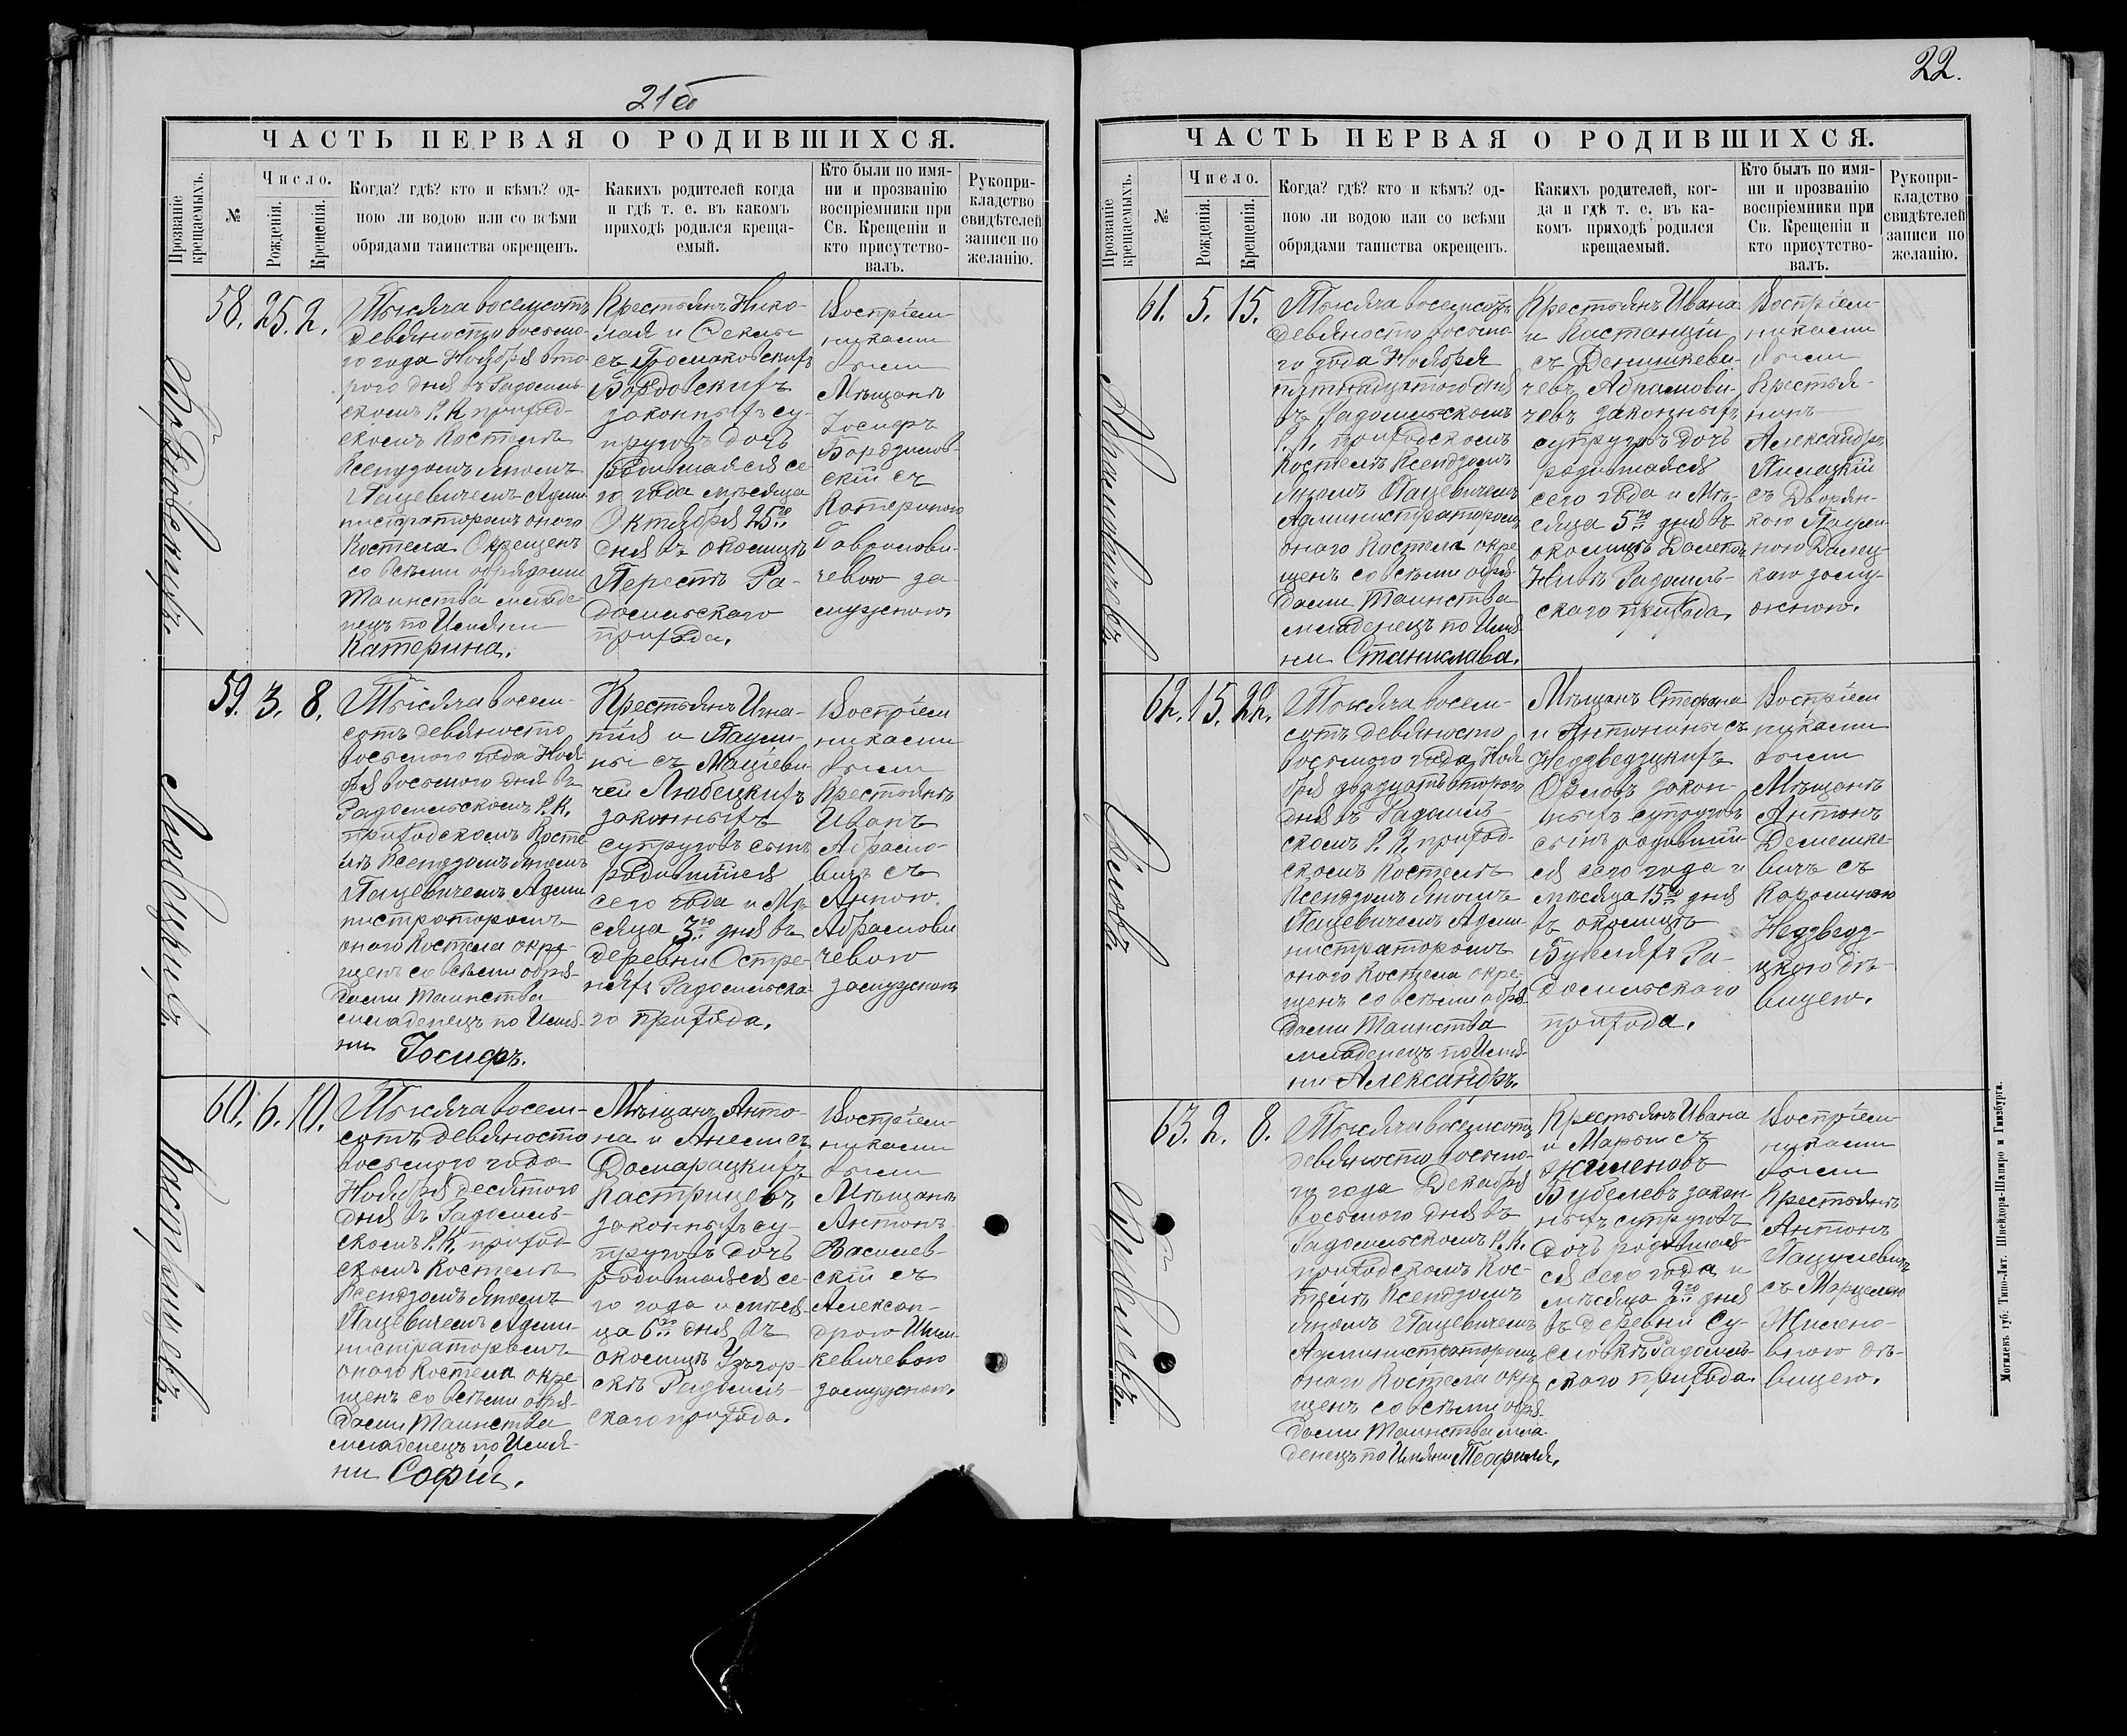 21б
ЧАСТЬ ПЕРВАЯ О РОДИВШИХСЯ.
Прозваніе крещаемыхъ.
№
Число.
Рожденія.
Крещенія.
Когда? гдѣ? кто и кѣмъ? од-
ною ли водою или со всѣми
обрядами таинства окрещенъ.
Какихъ родителей когда
и гдѣ т. е. въ какомъ
приходѣ родился креща-
емый.
Кто были по имя-
ни и прозванію
воспріемники при
Св. Крещеніи и
кто присутство-
валъ.
Рукопри-
кладство
свидѣтелей
записи по
желанію.
58. 25. 2.
Тысяча восемсотъ
девяносто восьмо-
го года Ноября вто-
рого дня въ Радомль-
скомъ Р. К. приход-
скомъ Костелѣ
Ксендзомъ Яномъ
Пацевичемъ Адми
нистраторомъ оного
Костела Окрещенъ
со всѣми обрядами
Таинства младе-
нецъ по Имяни
Катерина.
Крестьянъ Нико-
лая и Феклы
съ
законныхъ су-
пруговъ дочь
родившаяся се-
го года мѣсяца
Октября 25го
дня въ околицѣ
Перестѣ Ра-
домльского
прихода.
Воспріем-
никами
были
Мѣщанъ
Іосифъ
скій съ
Катериною
Гаврилови-
чевою за-
мужною.
59. 3. 8.
Любецкихъ.
Тысяча восем-
сотъ девяносто
восьмого года Ноя-
бря восьмого дня въ
Радомльскомъ Р. К.
приходскомъ Косте-
лѣ Ксендзомъ Яномъ
Пацевичемъ Адми
нистраторомъ
оного Костела окре-
щенъ со всѣми обря-
дами Таинства
младенецъ по Имя-
ни Іосифъ.
Крестьянъ Игна-
тія и Паули-
ны съ Маціеви-
чей Любецкихъ
законныхъ
супруговъ сынъ
родившійся
сего года и Мѣ-
сяца 3го дня въ
деревни Остре-
няхъ Радомльска-
го прихода.
Воспріем
никами
были
Крестьянъ
Иванъ
Абрамо-
вичъ съ
Анною
Абрамови
чевою
замужною
60. 6. 10.
Кастрицевъ.
Тысяча восем-
сотъ девяносто
восьмого года
Ноября десятого
дня въ Радомль-
скомъ Р. К. приход-
скомъ Костелѣ
Ксендзомъ Яномъ
Пацевичемъ Адми-
нистраторомъ
оного Костела окре
щенъ со всѣми обря-
дами Таинства
младенецъ по Имя-
ни Софія.
Мѣщанъ Анто-
на и Анели съ
Домарацкихъ
Кастрицевъ
законныхъ су-
пруговъ дочь
родившаяся се-
го года и мѣся-
ца 6го дня въ
околицѣ Узгор-
скѣ Радомль-
скаго прихода.
Воспріем-
никами
были
Мѣщанъ
Антонъ
Василев-
скій съ
Алексан-
дрою
кевичевою
замужною.
22.
ЧАСТЬ ПЕРВАЯ О РОДИВШИХСЯ.
Прозваніе крещаемыхъ.
№
Число.
Рожденія.
Крещенія.
Когда? гдѣ? кто и кѣмъ? од-
ною ли водою или со всѣми
обрядами таинства окрещенъ.
Какихъ родителей, ког-
да и гдѣ т. е. въ ка-
комъ приходѣ родился
крещаемый.
Кто былъ по имя-
ни и прозванію
воспріемники при
Св. Крещеніи и
кто присутство-
валъ.
Рукопри-
кладство
свидѣтелей
записи по
желанію.
61. 5. 15.
Абрамовичевъ.
Тысяча восемсотъ
девяносто восьмо-
го года Ноября
пятнадцатого дня
въ Радомльскомъ
Р. К. приходскомъ
Костелѣ Ксендзомъ
Яномъ Пацевичемъ
Администраторомъ
оного Костела окре
щенъ со всѣми обря-
дами Таинства
младенецъ по Имя
ни Станислава.
Крестьянъ Ивана
и Костанціи
съ Денишкеви-
чевъ Абрамови-
чевъ законныхъ
супруговъ дочь
родившаяся
сего года и Мѣ-
сяца 5го дня въ
околицѣ
Нивѣ Радомль-
скаго прихода.
Воспріем-
никами
были
Крестья-
нинъ
Александръ
съ Дворян-
кою Паули-
ною Далец-
кою заму-
жною.
62. 15. 22.
Озловъ
Тысяча восем-
сотъ девяносто
восьмого года Ноя
бря двадцатьвторого
дня въ Радомль-
скомъ Р. К. приход-
скомъ Костелѣ
Ксендзомъ Яномъ
Пацевичемъ Адми-
нистраторомъ
оного Костела окре-
щенъ со всѣми обря-
дами Таинства
младенецъ по Имя-
ни Александръ.
Мѣщанъ Стефана
и Антонины съ
Недзведзкихъ
Озловъ закон-
ныхъ супруговъ
сынъ родивший
ся сего года и
мѣсяца 15го дня
въ околицѣ
Бубеляхъ Ра-
домльского
прихода.
Воспріем
никами
были
Мѣщанъ
Антонъ
Демешке-
вичъ съ
Каролиною
Недзведз-
цкою дѣ-
вицею.
63. 2. 8.
Бубелевъ.
Тысяча восемсотъ
девяносто восьмо-
го года Декабря
восьмого дня въ
Радомльскомъ Р. К.
приходскомъ Кос-
телѣ Ксендзомъ
Яномъ Пацевичемъ
Администраторомъ
оного Костела окре
щенъ со всѣми обря-
дами Таинства мла-
денецъ по Имяни Теофиля.
Крестьянъ Ивана
и Марыи съ
Жиленовъ
Бубелевъ закон-
ныхъ супруговъ
дочь родившая-
ся сего года и
мѣсяца 2го дня
въ деревни Су-
словкѣ Радомль-
скаго прихода.
Воспріем-
никами
были
Крестьянъ
Антонъ
Пацулевичъ
съ Марцелею
Жилено-
вною дѣ-
вицею.
Могилевъ губ. Типо-Лит. Шнейдора-Шапиро и Гинзбурга.